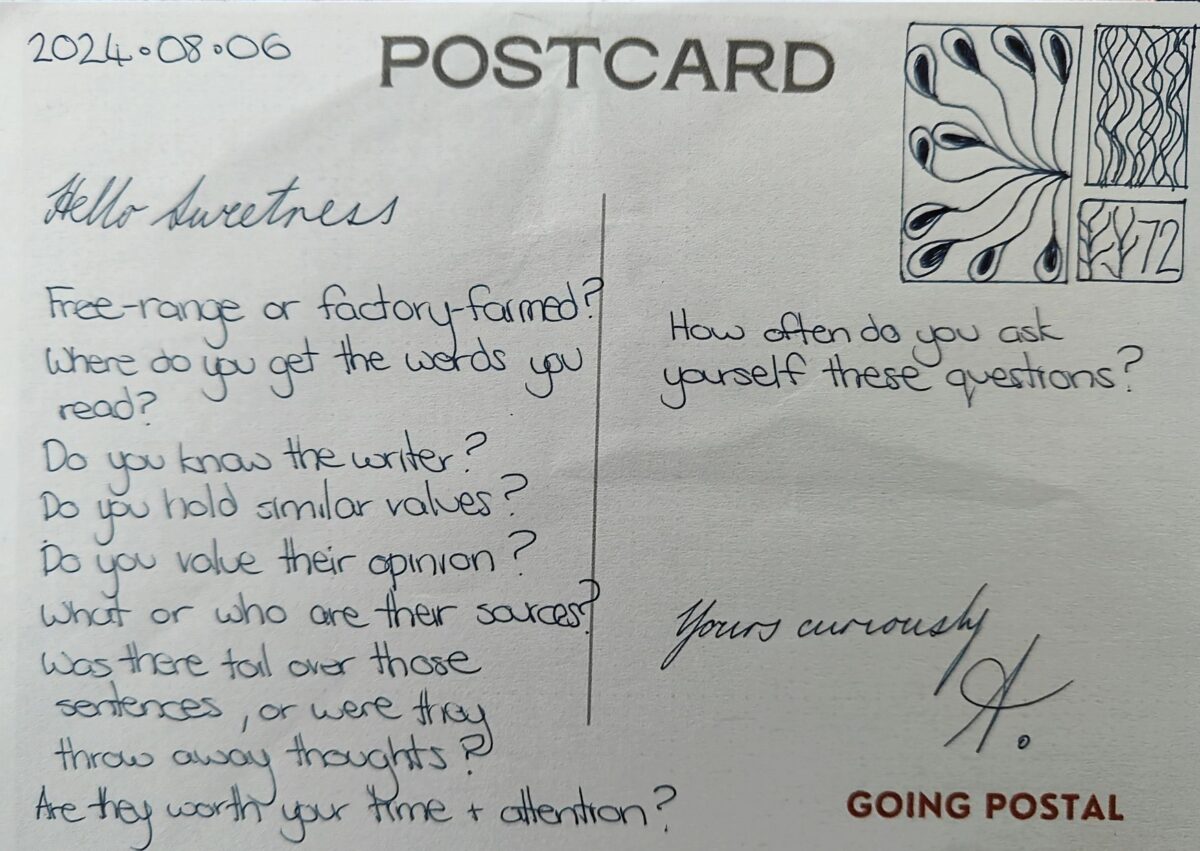 2024.08.06
POSTCARD
72
Hello Sweetness
Free-range or factory-farmed?
Where do you get the words you
read?
Do you know the writer?
Do you hold similar values?
Do you value their opinion?
What or who are their sources?
Was there toil over those
sentences, or were they
throw away thoughts?
Are they worth your time + attention?
How often do you ask
yourself these questions?
Yours curiously
A.
GOING POSTAL